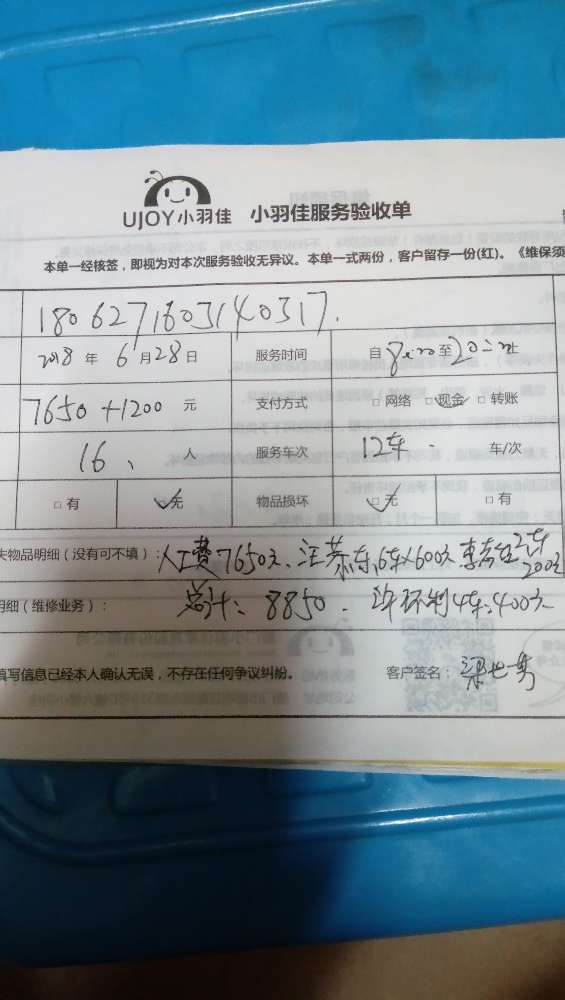 UJOY小羽佳 小羽佳服务验收单
本单一经核签，即视为对本次服务验收无异议。本单一式两份，客户留存一份(红)。《维保须
1806271603140317.
2018 年 6 月 28 日 服务时间 自 8:00 至 20:00 止
7650+1200 元 支付方式 □ 网络 □ 现金 □ 转账
16、 人 服务车次 12车. 车/次
□ 有 □ 无 物品损坏 □ 无 □ 有
失物品明细（没有可不填）: 人工费7650元. 6车×600元 2车200元
明细（维修业务）: 总计: 8850. 4车.400元
填写信息已经本人确认无误，不存在任何争议纠纷。 客户签名: